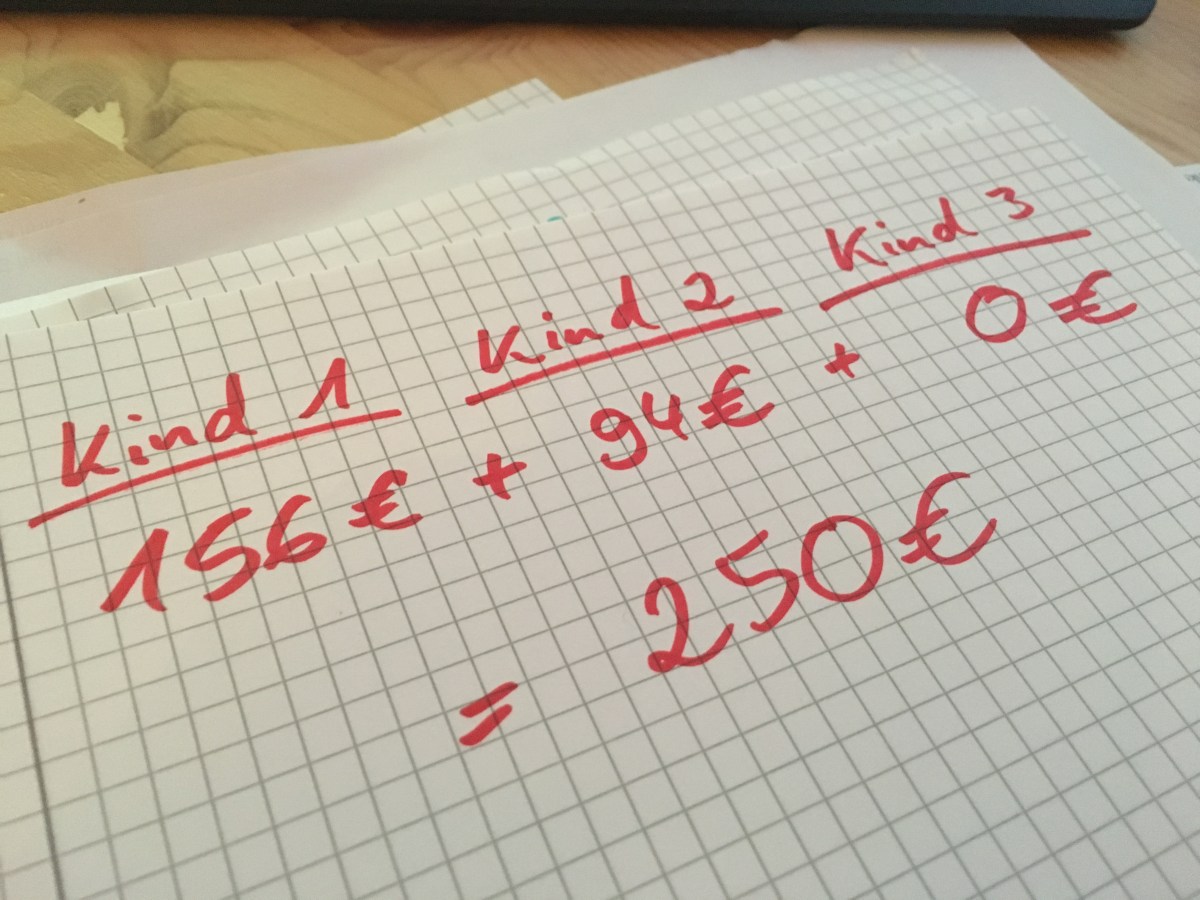 Kind 1 Kind 2 Kind 3
156€ + 94€ + 0€
= 250€